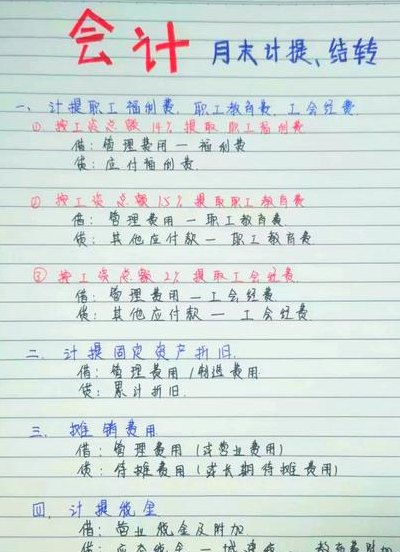 会计 月末计提、结转
一、计提职工福利费、职工教育费、工会经费
① 按工资总额14%提取职工福利费
借：管理费用一福利费
贷：应付福利费.
② 按工资总额1.5%提取职工教育费
借：管理费用一职工教育费
贷：其他应付款一职工教育费
③ 按工资总额2%提取工会经费
借：管理费用一工会经费
贷：其他应付款一工会经费
二、计提固定资产折旧.
借：管理费用/制造费用
贷：累计折旧.
三、摊销费用
借：管理费用(或营业费用)
贷：待摊费用(或长期待摊费用)
四、计提税金
借：营业税金及附加